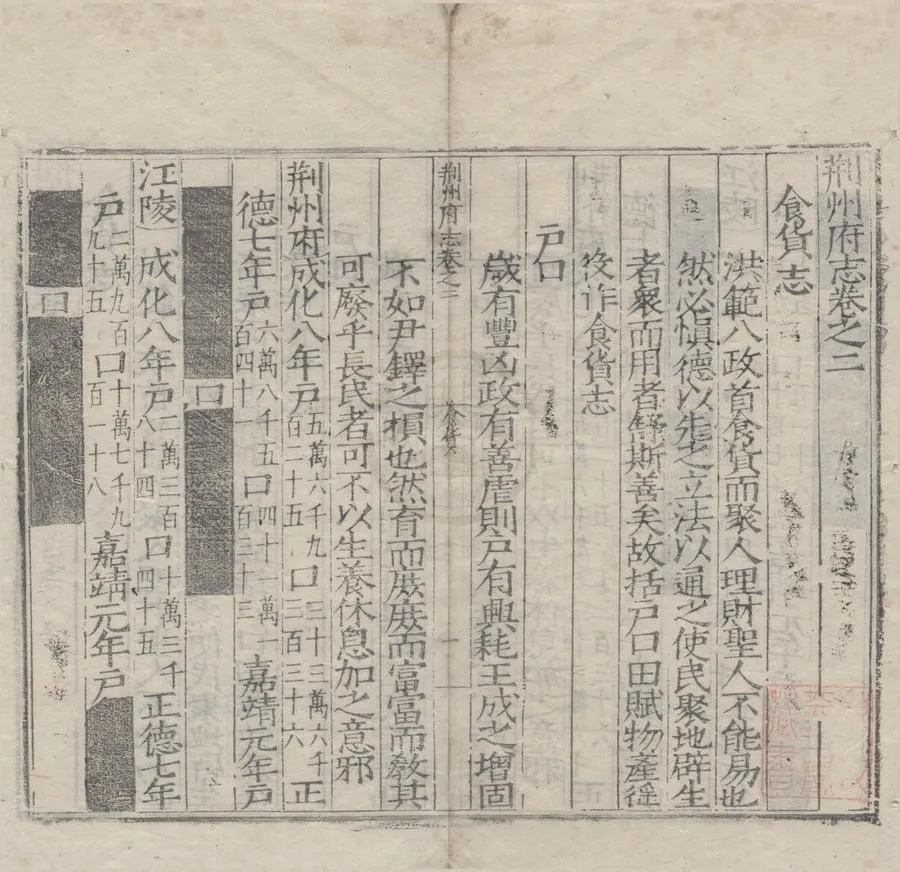 荆州府志卷之三
食貨志
洪範八政首食貨而聚人理財聖人不能易也
然必愼德以先之立法以通之使民聚地辟生
者衆而用者舒斯善矣故括户口田賦物產徭
役作食貨志
户口
歲有豐凶政有善虐則户有興耗王成之增固
荆州府志卷之三
不如尹鐸之損也然育而庶庶而富富而敎其
可廢乎長民者可不以生養休息加之意邪
荆州府成化八年户五萬六千九百二十五口三十三萬六千三百三十六正
德七年户六萬八千五百四十一口四十一萬一百三十三嘉靖元年户
口
江陵成化八年户二萬三百八十四口十萬三千四十五正德七年
户二萬九百九十五口十萬七千九百一十八嘉靖元年户
口